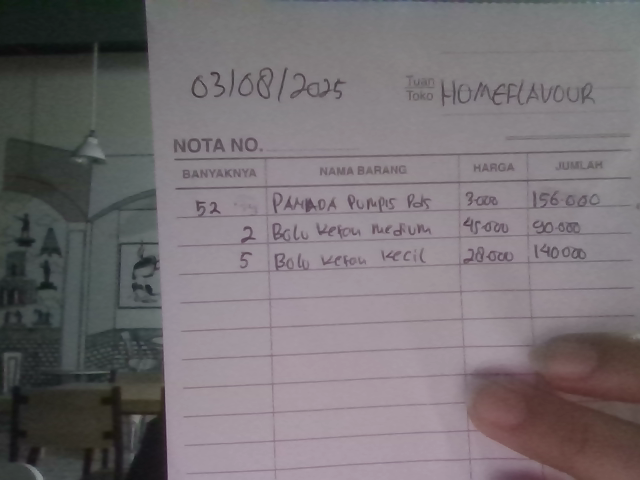 03/08/2025
Tuan
Toko HOMEFLAVOUR
NOTA NO.
BANYAKNYA NAMA BARANG HARGA JUMLAH
52 PANADA 3.000 156.000
2 Bolu Ketan medium 45.000 90.000
5 Bolu Ketan Kecil 28.000 140.000